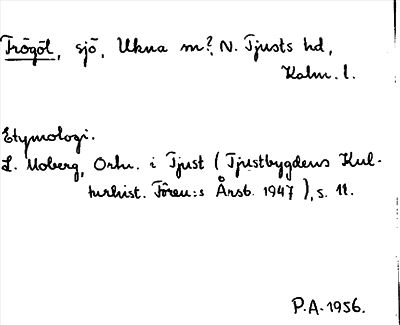 Trögöl, sjö, Ukna sn?, N. Tjusts hd,
Kalm. l.
Etymologi.
L. Moberg, Ortn. i Tjust (Tjustbygdens Kul-
turhist. Fören:s Årsb. 1947), s. 11.
P.A. 1956.